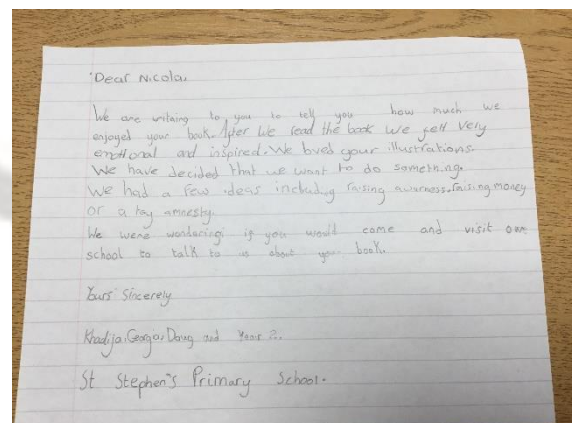 Dear Nicola,
We are writing to you to tell you how much we
enjoyed your book. After we read the book we felt very
emotional and inspired. We loved your illustrations.
We have decided that we want to do something.
We had a few ideas including raising awarness, raising money
or a toy amnesty.
We were wondering if you would come and visit our
school to talk to us about your book.
Yours Sincerely
Khadija, George, and Year 2.
St Stephen's Primary School.